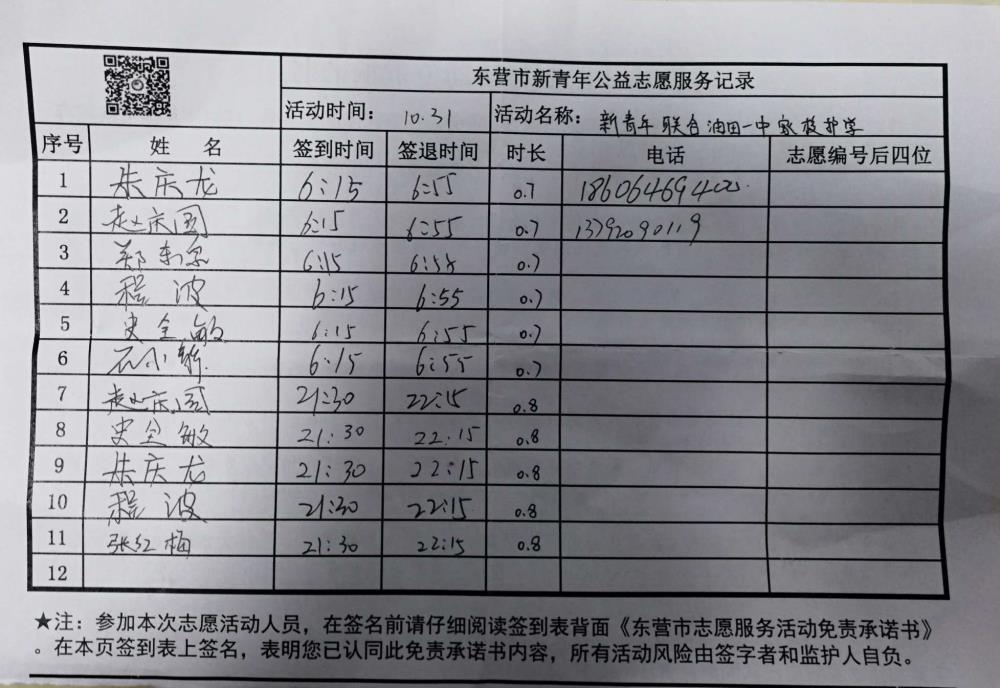 东营市新青年公益志愿服务记录
活动时间： 10.31 活动名称： 新青年联合油田一中家校护学
序号 姓 名 签到时间 签退时间 时长 电话 志愿编号后四位
1 朱庆龙 6:15 6:55 0.7 186064694
2 赵庆国 6:15 6:55 0.7 13792090119
3 郑 6:15 6:58 0.7
4 程波 6:15 6:55 0.7
5 史全敏 6:15 6:55 0.7
6 石小 6:15 6:55 0.7
7 赵庆国 21:30 22:15 0.8
8 史全敏 21:30 22:15 0.8
9 朱庆龙 21:30 22:15 0.8
10 程波 21:30 22:15 0.8
11 张红梅 21:30 22:15 0.8
12
★注：参加本次志愿活动人员，在签名前请仔细阅读签到表背面《东营市志愿服务活动免责承诺书》
。在本页签到表上签名，表明您已认同此免责承诺书内容，所有活动风险由签字者和监护人自负。